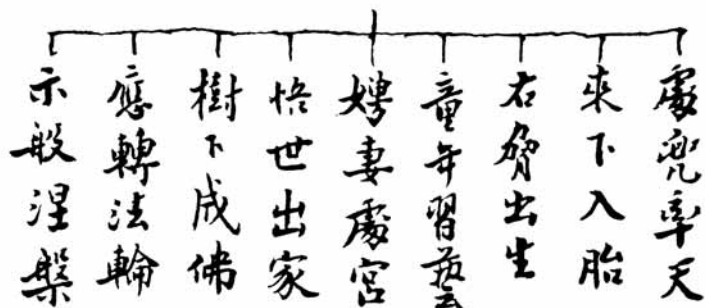 處兜率天
來下入胎
右脅出生
童年習藝
娉妻處宮
悟世出家
樹下成佛
應轉法輪
示般涅槃